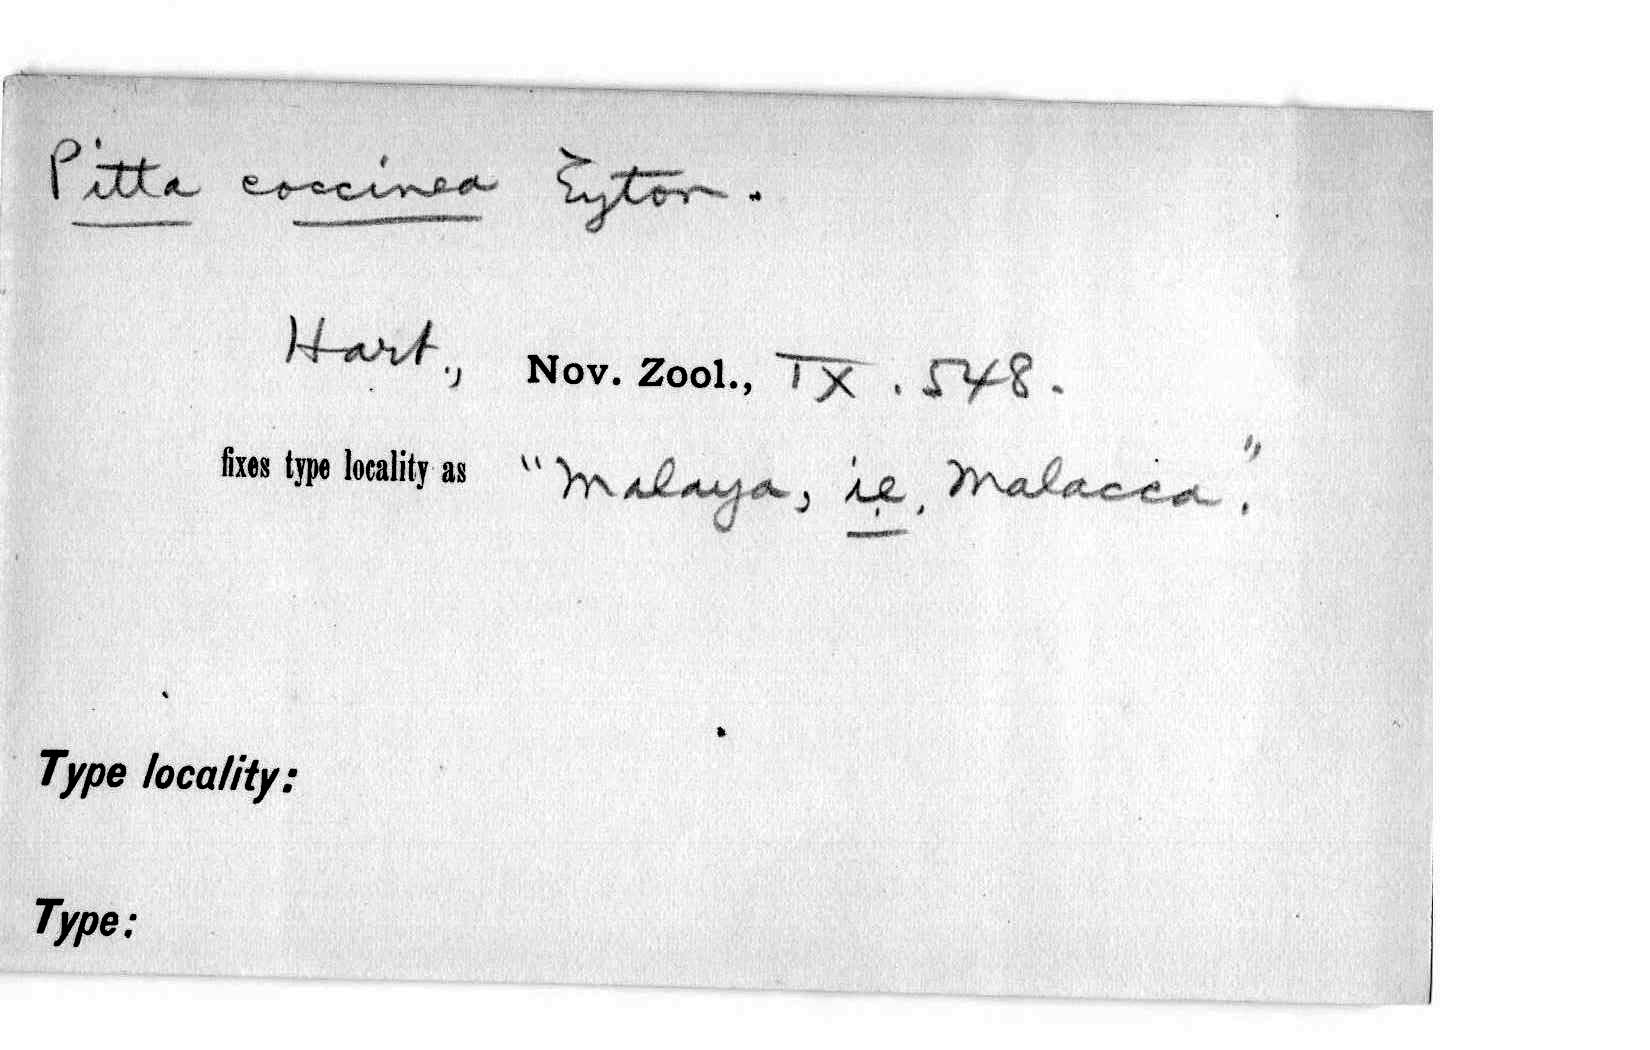 Pitta coccinea Eyton.
Hart., Nov. Zool., IX. 548.
fixes type locality as "Malaya, i.e., Malacca."
Type locality:
Type: